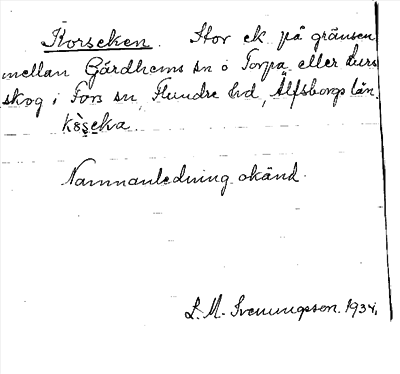 Korseken. Stor ek på gränsen
mellan Gärdhems sn o Torpa eller Kurs
skog i Fors sn, Flundre hd, Älfsborgs län.
Namnanledning okänd.
L. M. Svenungsson. 1934.